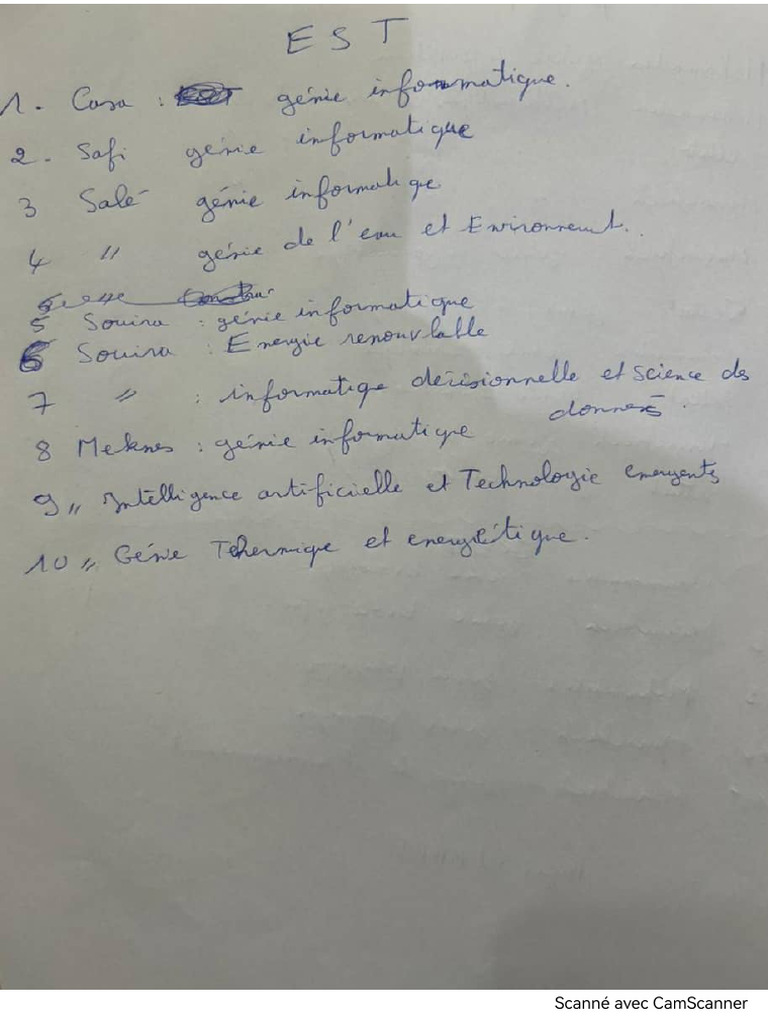 EST
1. Casa : génie informatique.
2. Safi génie informatique
3 Salé génie informatique
4 " génie de l'eau et Environnement.
5 Souira : génie informatique
6 Souira : Energie renouvlable
7 " : informatique décisionnelle et science des
donnés.
8 Meknes : génie informatique
9 " Intelligence artificielle et Technologie emergents
10 " Génie Thermique et energétique.
Scanné avec CamScanner